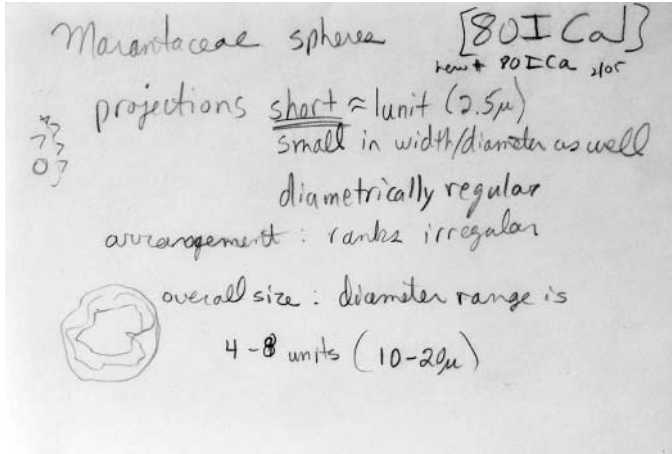 Marantaceae spheres [80I Ca]
new # 80ICa 2/05
projections short ≈ 1unit (2.5μ)
small in width/diameter as well
diametrically regular
arrangement : ranks irregular
overall size : diameter range is
4-8 units (10-20μ)